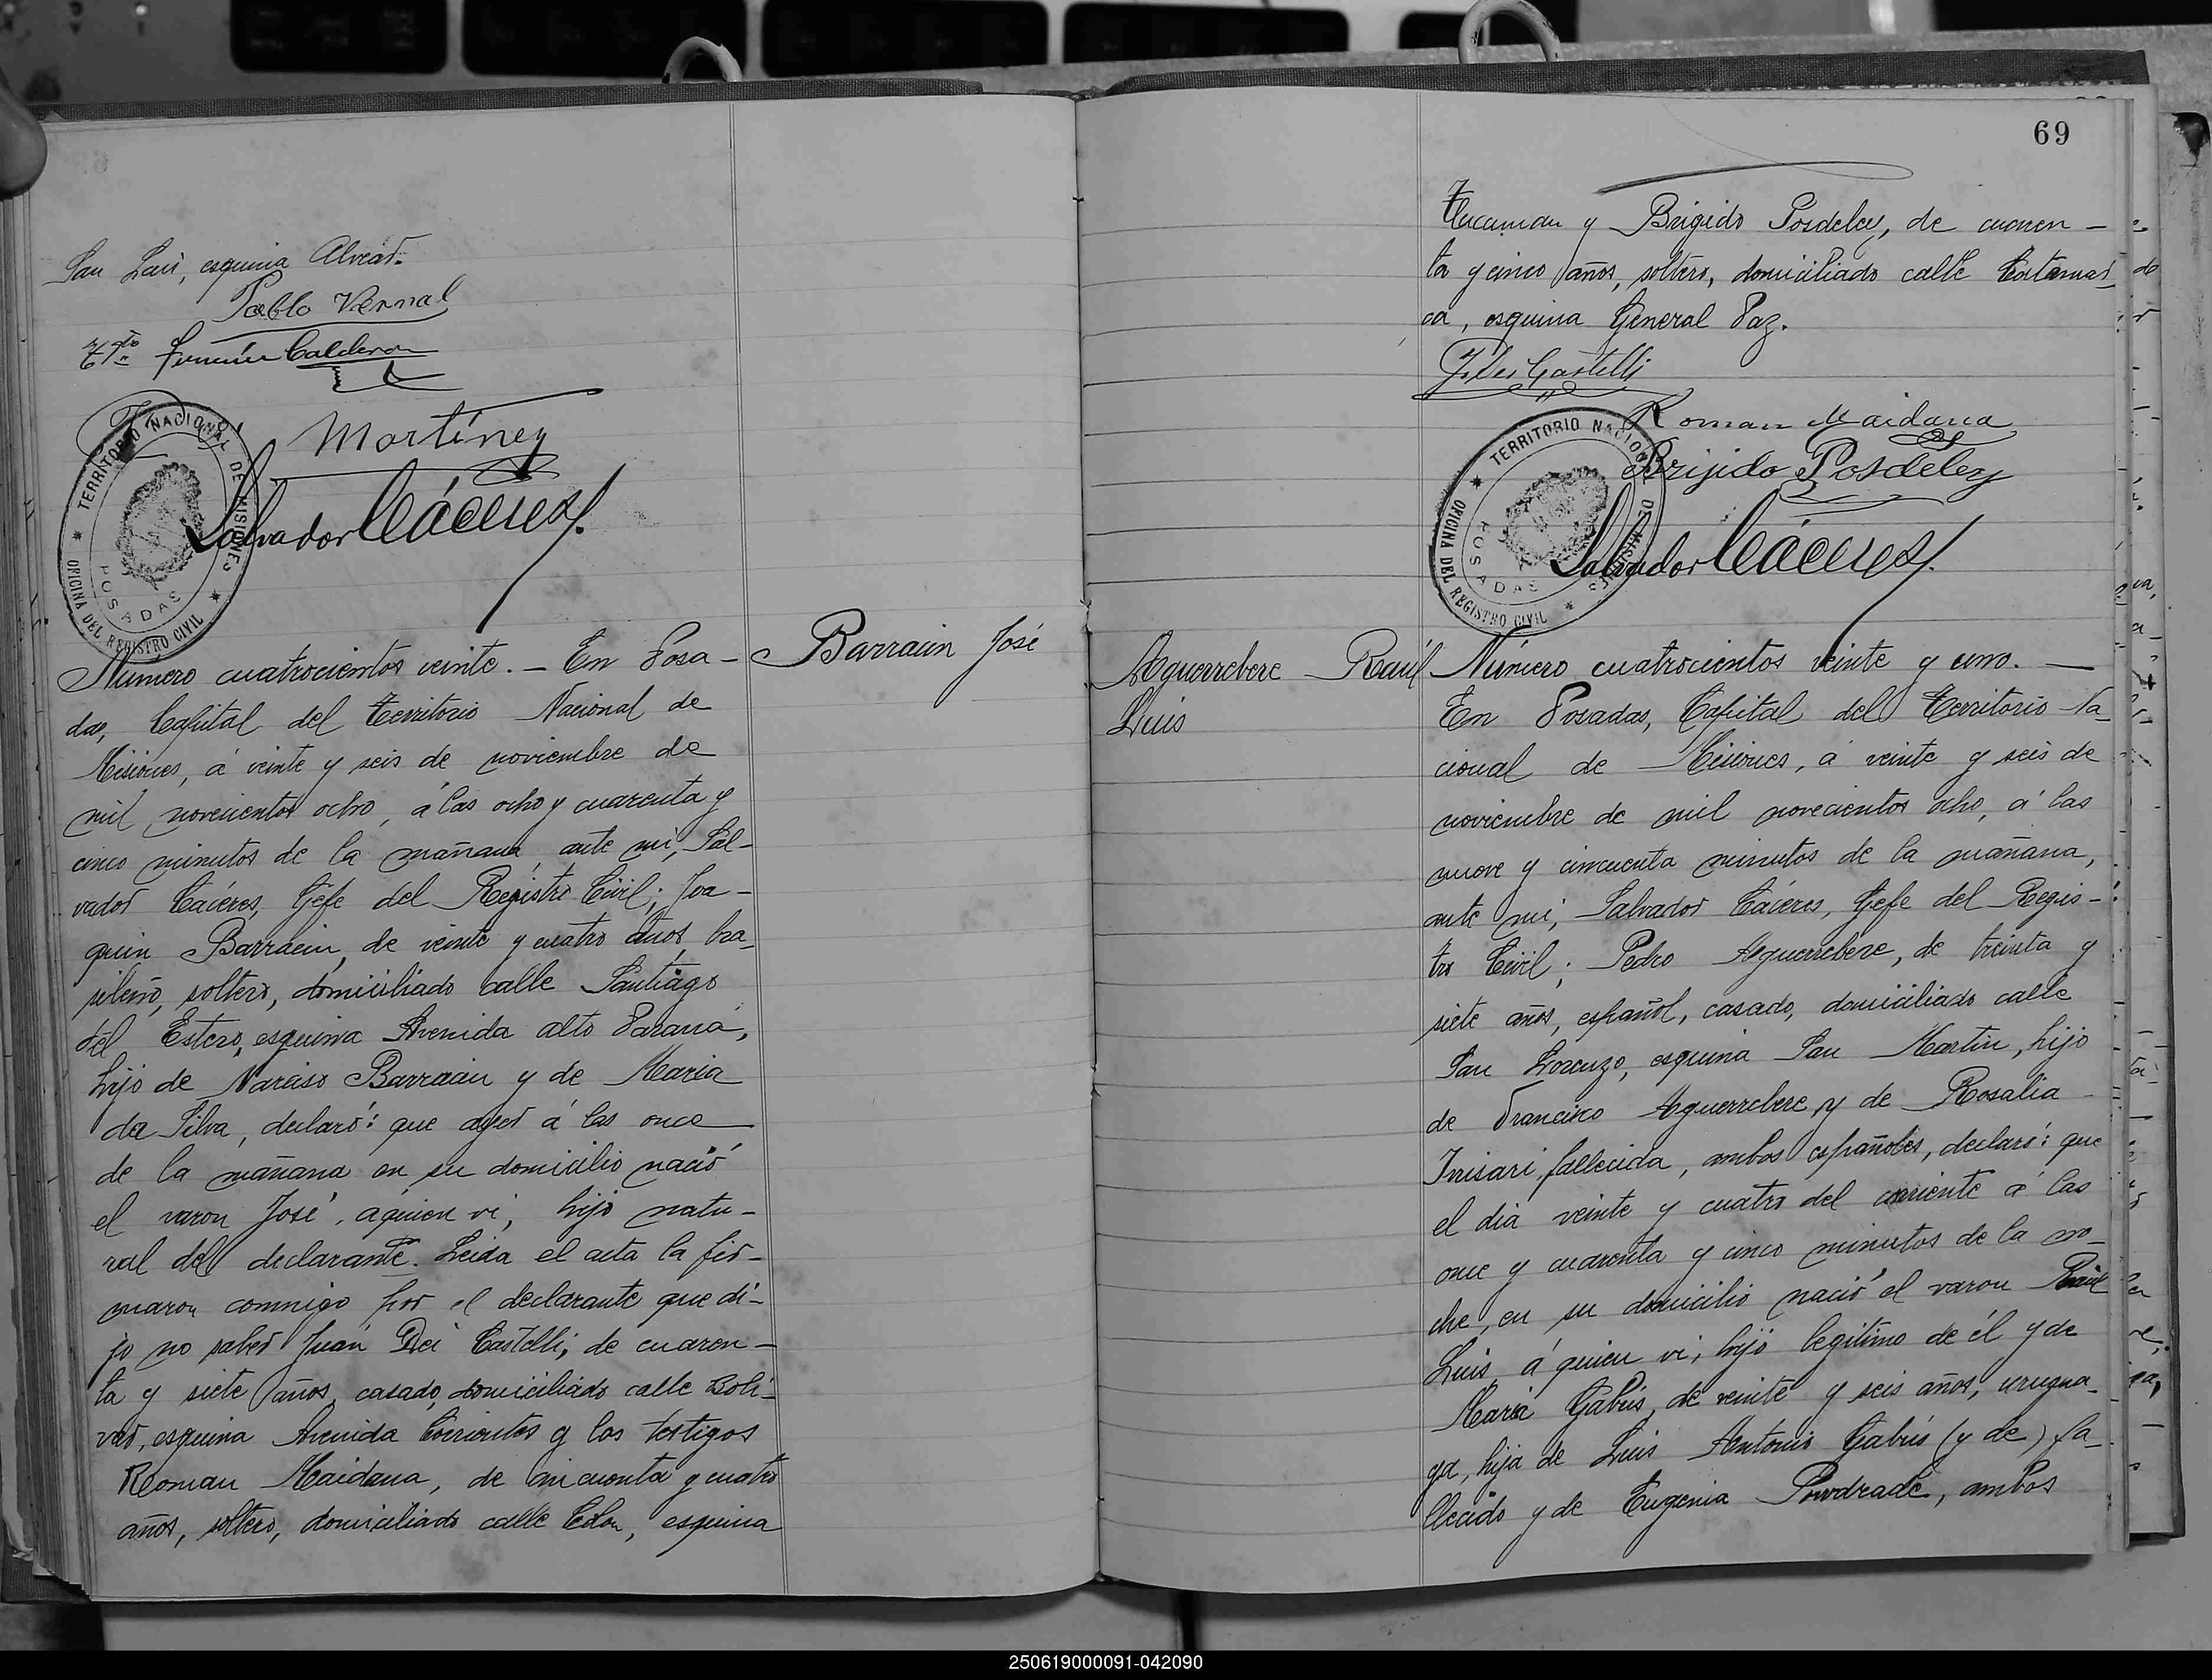 San Luis, esquina Alvear.
Pablo Vernal
Fermín Calderon
Martínez
TERRITORIO NACIONAL DE MISIONES
OFICINA DEL REGISTRO CIVIL
POSADAS
Salvador Cáceres
Número cuatrocientos veinte. — En Posa-
das, Capital del Territorio Nacional de
Misiones, á veinte y seis de noviembre de
mil novecientos ocho, á las ocho y cuarenta y
cinco minutos de la mañana, ante mí, Sal-
vador Cáceres, Gefe del Registro Civil; Joa-
quin Barraain, de veinte y cuatro años, bra-
sileño, soltero, domiciliado calle Santiago
del Estero, esquina Avenida alto Paraná,
hijo de Narciso Barraain y de Maria
da Silva, declaró: que ayer á las once
de la mañana en su domicilio nació
el varon José, aquien vi, hijo natu-
ral del declarante. Leida el acta la fir-
maron conmigo por el declarante que di-
jo no saber Juan Dei Castelli, de cuaren-
ta y siete años, casado, domiciliado calle Boli-
var, esquina Avenida Corrientes y los testigos
Roman Maidana, de cincuenta y cuatro
años, soltero, domiciliado calle Colon, esquina
Barraain José
69
Tucuman y Brigido Posdeley, de cuaren-
ta y cinco años, soltero, domiciliado calle Catamar
ca, esquina General Paz.
J. Dei Castelli
Roman Maidana
Brijido Posdeley
TERRITORIO NACIONAL DE MISIONES
OFICINA DEL REGISTRO CIVIL
POSADAS
Salvador Cáceres
Aguerrebere Raúl
Luis
Número cuatrocientos veinte y uno. —
En Posadas, Capital del Territorio Na-
cional de Misiones, á veinte y seis de
noviembre de mil novecientos ocho, á las
nueve y cincuenta minutos de la mañana,
ante mí, Salvador Cáceres, Gefe del Regis-
tro Civil; Pedro Aguerrebere, de treinta y
siete años, español, casado, domiciliado calle
San Lorenzo, esquina San Martin, hijo
de Francisco Aguerrebere y de Rosalia
Irisari, fallecida, ambos españoles, declaró: que
el dia veinte y cuatro del corriente á las
once y cuarenta y cinco minutos de la no-
che, en su domicilio nació el varon Raúl
Luis, á quien vi, hijo legitimo de él y de
Maria Gabús, de veinte y seis años, urugua-
ya, hija de Luis Antonio Gabús (y de) fa-
llecido y de Eugenia Powdrade, ambos
250619000091-042090